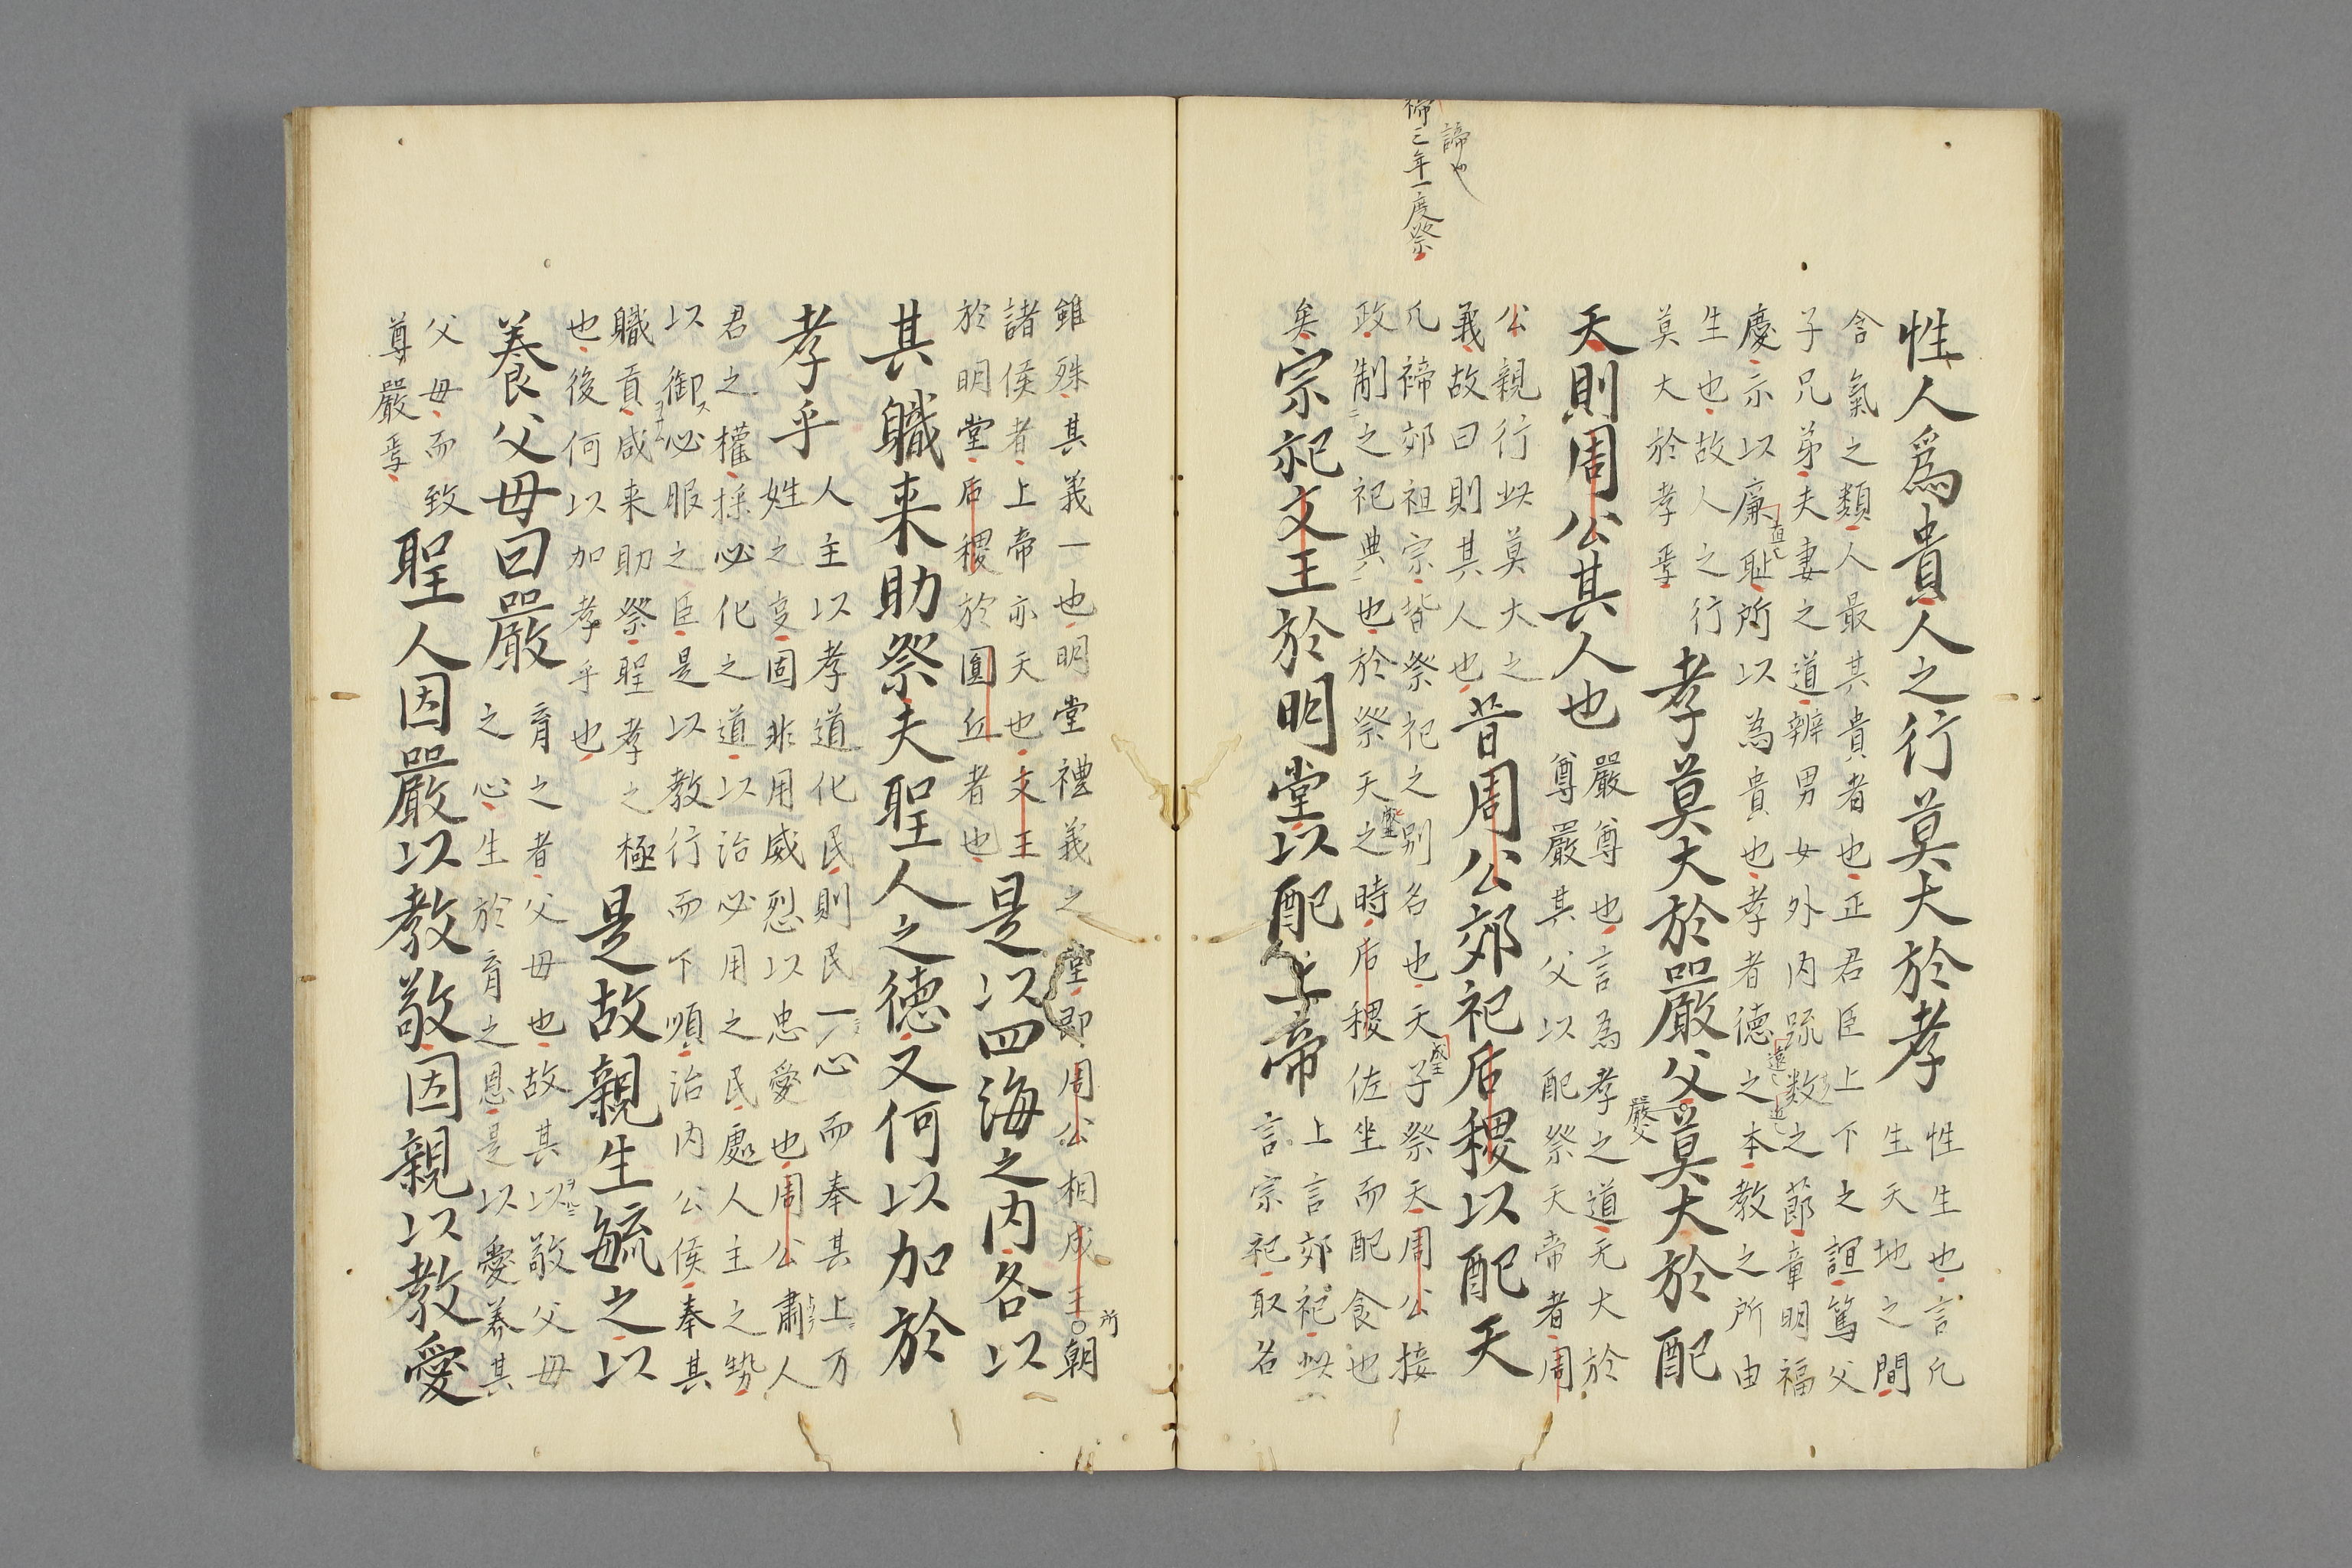 諦也
禘三年一度祭
性人爲貴人之行莫大於孝
性生也言凡
生天地之間
含氣之類人最其貴者也正君臣上下之誼篤父
子兄弟夫妻之道辨男女外内疏数之莭章明福
慶示以廉恥所以為貴也孝者徳之本教之所由
生也故人之行
莫大於孝焉
孝莫大於嚴父莫大於配
嚴父
嚴尊也言為孝之道无大於
尊嚴其父以配祭天帝者周
天則周公其人也
公親行此莫大之
義故曰則其人也
昔周公郊祀后稷以配天
凡禘郊祖宗皆祭祀之別名也天子祭天周公接
政制之祀典也於祭天之時后稷佐坐而配食也
矣
宗祀文王於明堂以配上帝
上言郊祀此
言宗祀取名
雖殊其義一也明堂禮義之堂即周公相成王朝
所
諸侯者上帝亦天也文王
於明堂后稷於圓丘者也
是以四海之内各以
其職来助祭夫聖人之徳又何以加於
孝乎
人主以孝道化民則民一心而奉其上万
姓之㕝固非用威烈以忠愛也周公肅人
君之權採必化之道以治必用之民處人主之勢
以御必服之臣是以教行而下順治内公侯奉其
職貢咸来助祭聖孝之極
也後何以加孝乎也
是故親生毓之以
養父母曰嚴
育之者父母也故其以敬父母
之心生於育之恩是以愛养其
父母而致
尊嚴焉
聖人因嚴以教敬因親以教愛